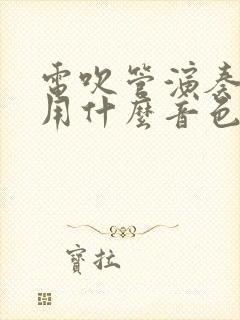 電吹管演奏
用什麼音色
寶拉